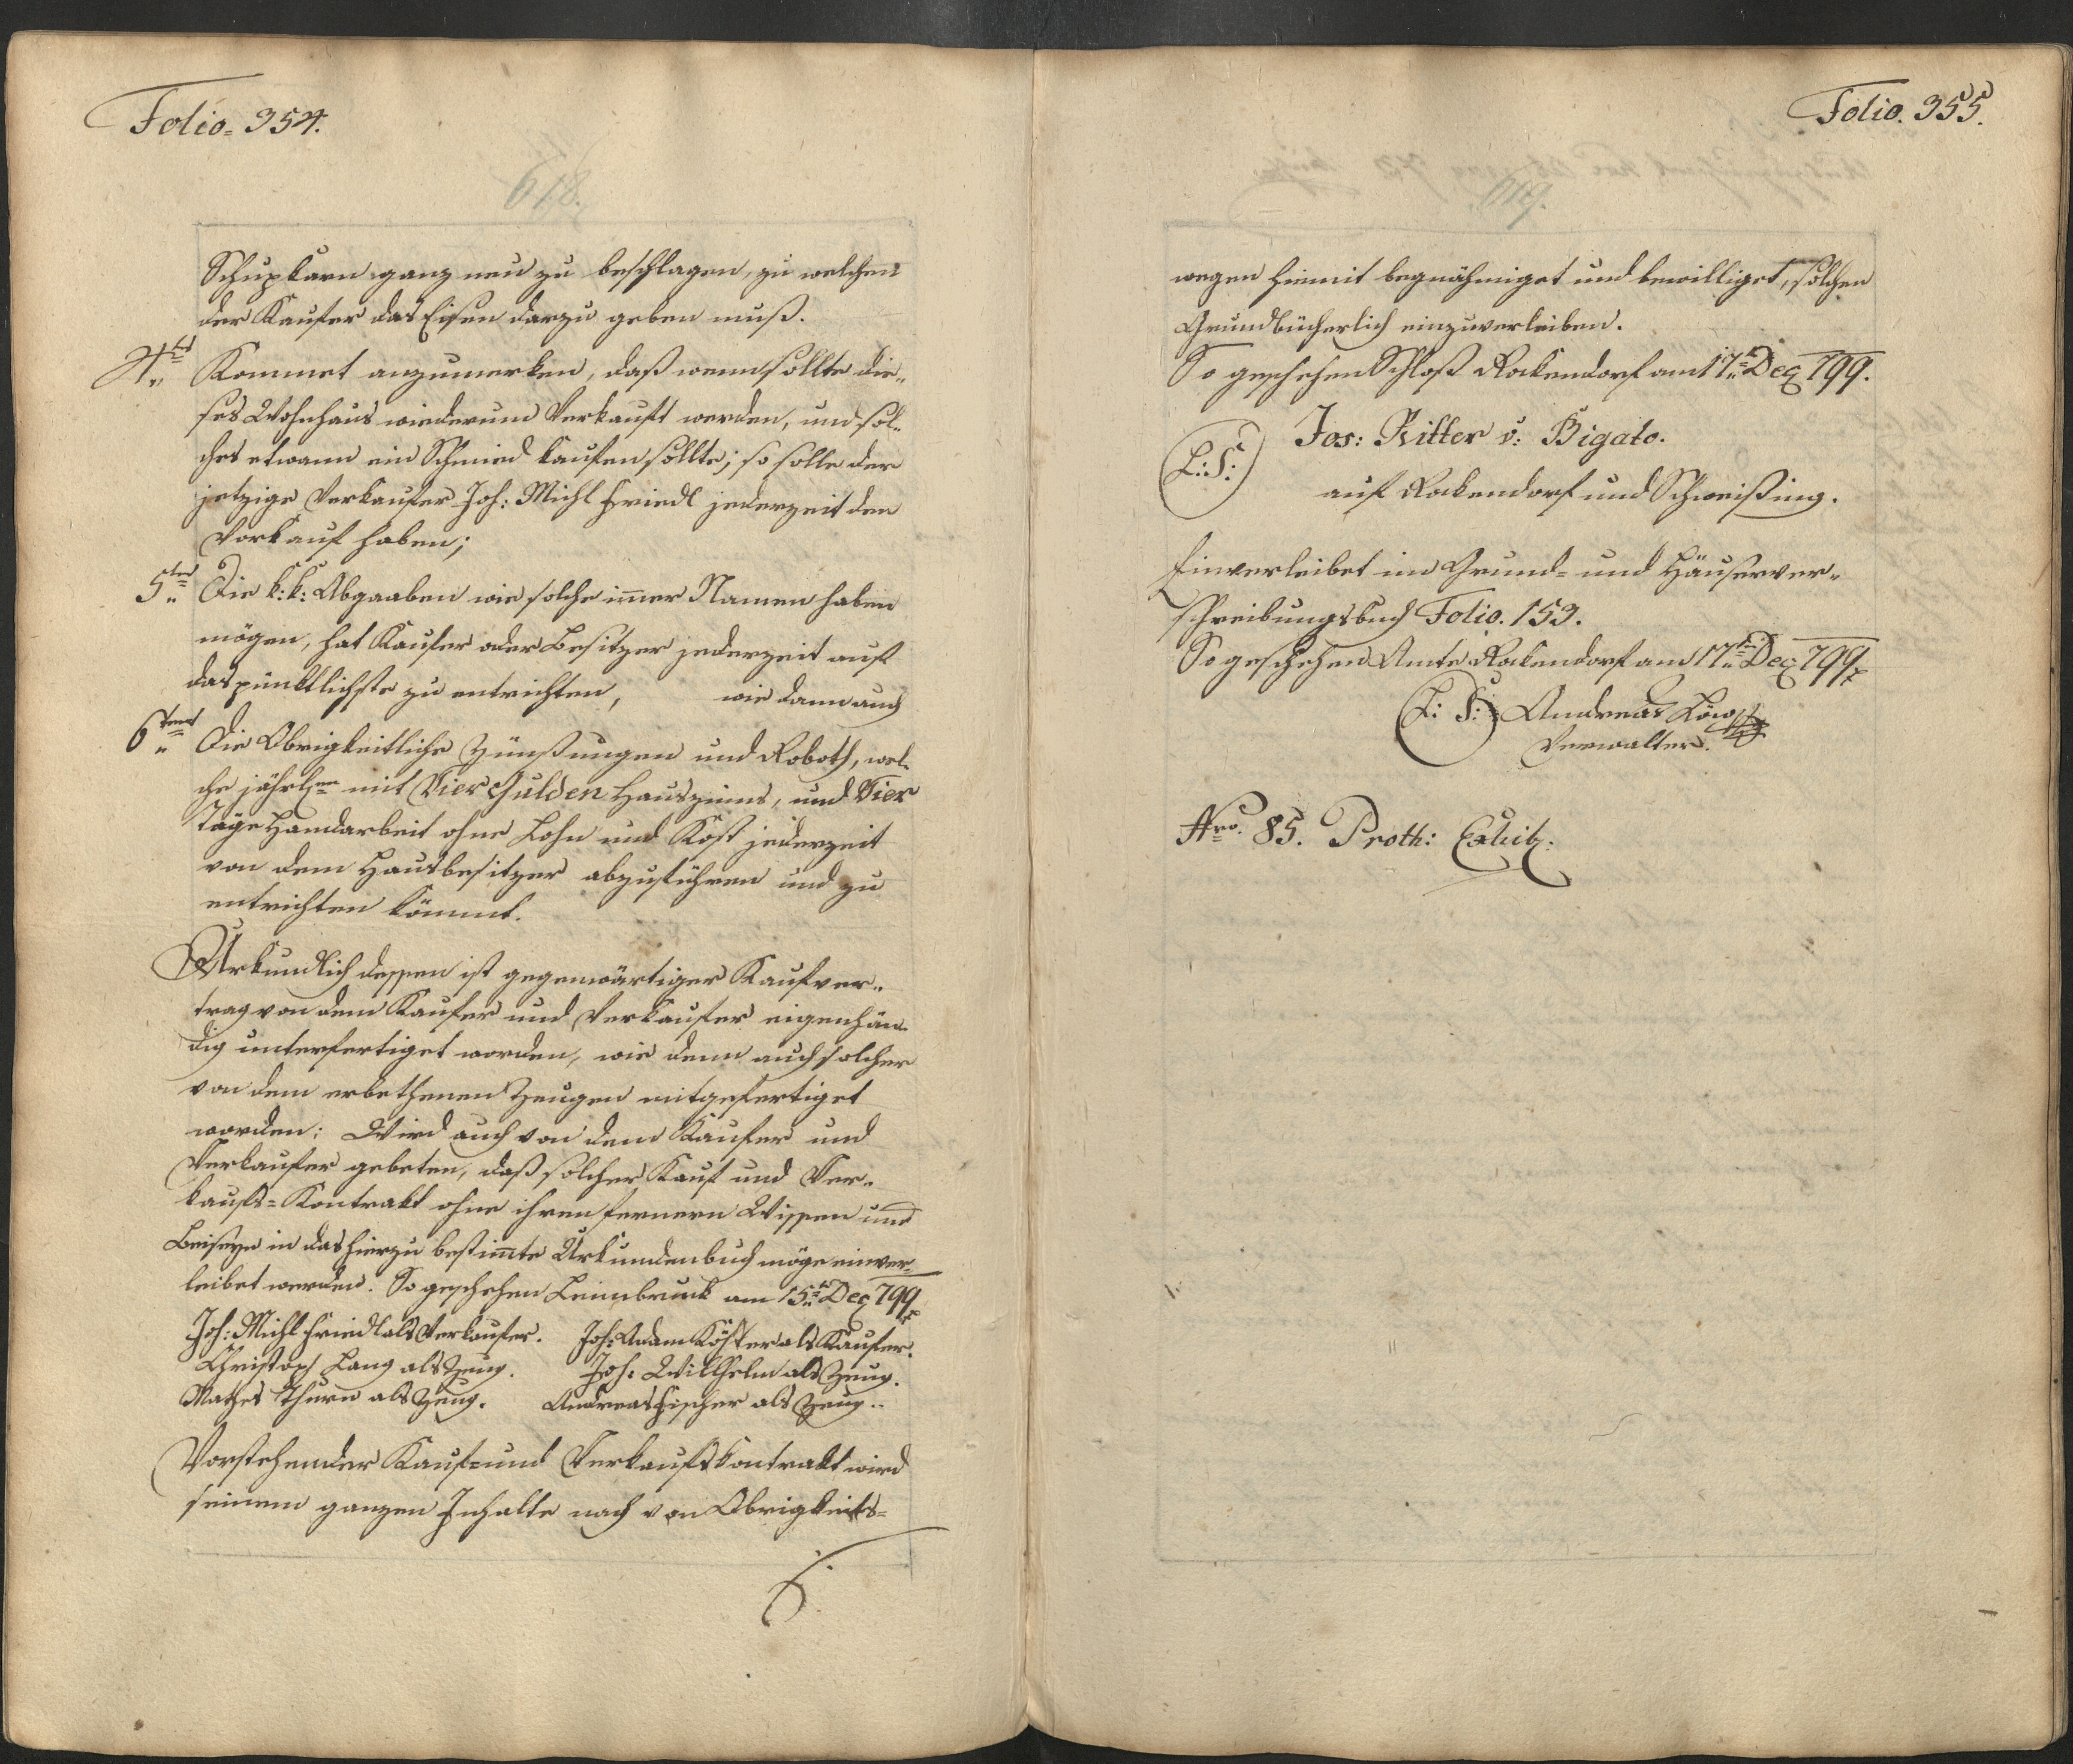 Folio. 354.
618.
Schupkarn ganz neu zu beschlagen, zu welchen
der Kaufer das Eisen darzu geben muß.
4tens Kommet anzumerken, daß wenn sollte die„
ses Wohnhaus wiederum Verkauft werden, und sol„
ches etwann ein Schmied kaufen sollte; so solle der
jetzige Verkaufer Joh: Michl Friedl jederzeit den
Vorkauf haben;
5tens Die k: k: Abgaaben wie solche im̄er Namen haben
mögen, hat Kaufer oder Besitzer jederzeit auf
das pünktlichste zu entrichten, wie dann auch
6tens Die Obrigkeitliche Zünßungen und Roboth, wel„
che jährl:en mit Vier Gulden Hauszinns, und Vier
Täge Handarbeit ohne Lohn und Kost jederzeit
von dem Hausbesitzer abzuführen und zu
entrichten kömmt.
Urkundlich dessen ist gegenwärtiger Kaufver„
trag von dem Kaufer und Verkaufer eigenhän„
dig unterfertiget worden, wie denn auch solcher
von dem erbethenen Zeugen mitgefertiget
worden: Wird auch von dem Kaufer und
Verkaufer gebeten, daß solcher Kauf und Ver„
kaufs=Kontrakt ohne ihren fernern Wissen und
Beiseyn in das hierzu bestim̄te Urkundenbuch möge einver„
leibet werden. So geschehen Leimbruck am 15ten Dec 799
Joh: Michl Friedl als Verkaufer. Joh: Adam Köster als Kaufer.
Christoph Lang als Zeug. Joh: Willhelm als Zeug.
Mathes Thurn als Zeug. Andreas Fischer als Zeug.
Vorstehender Kauf= und Verkaufskontrakt wird
seinem ganzen Inhalte nach von Obrigkeits=
Folio. 355.
619.
wegen hiemit begnähmiget und bewilliget, solchen
Grundbücherlich einzuverleiben.
So geschehen Schloß Rokendorf am 17ten Dec 799.
Jos: Ritter v: Bigato.
L: S:
auf Rokendorf und Schweißing.
Einverleibet im Grund= und Häuserver„
schreibungsbuch Folio. 153.
So geschehen Amte Rokendorf am 17ten Dec 799
L: S: Andreas Löw
Verwalter.
Nro. 85. Proth: Exhib: